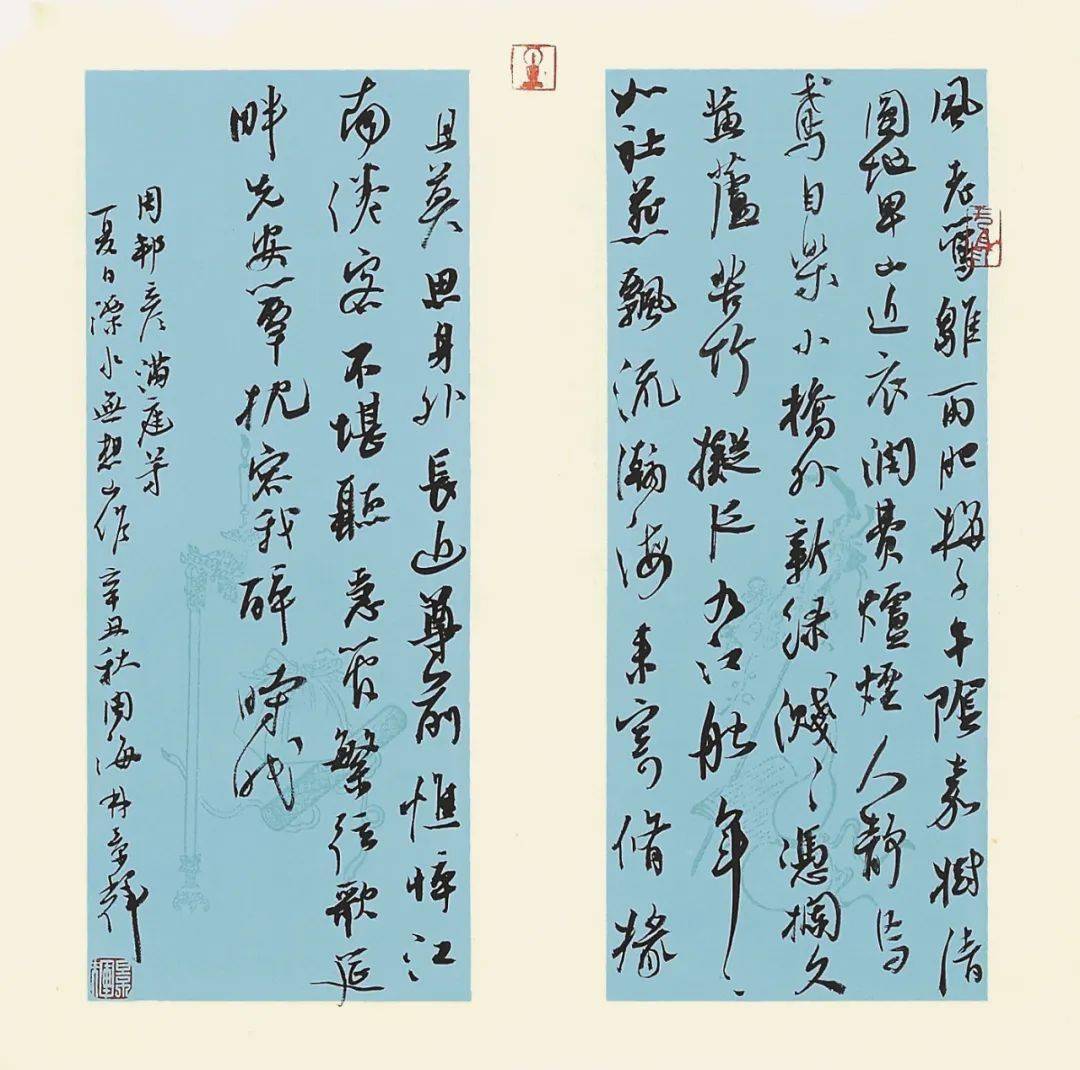 風老鶯雛雨肥梅子午陰嘉樹清
圓地卑山近衣潤費爐煙人靜烏
鳶自樂小橋外新綠濺〻憑欄久
黃蘆苦竹擬泛九江船年〻
如社燕飄流瀚海來寄脩椽
且莫思身外長近尊前憔悴江
南倦客不堪聽急管繁弦歌延
畔先安簟枕容我醉時眠
周邦彥滿庭芳
夏日溧水無想山作辛丑秋周海景輝